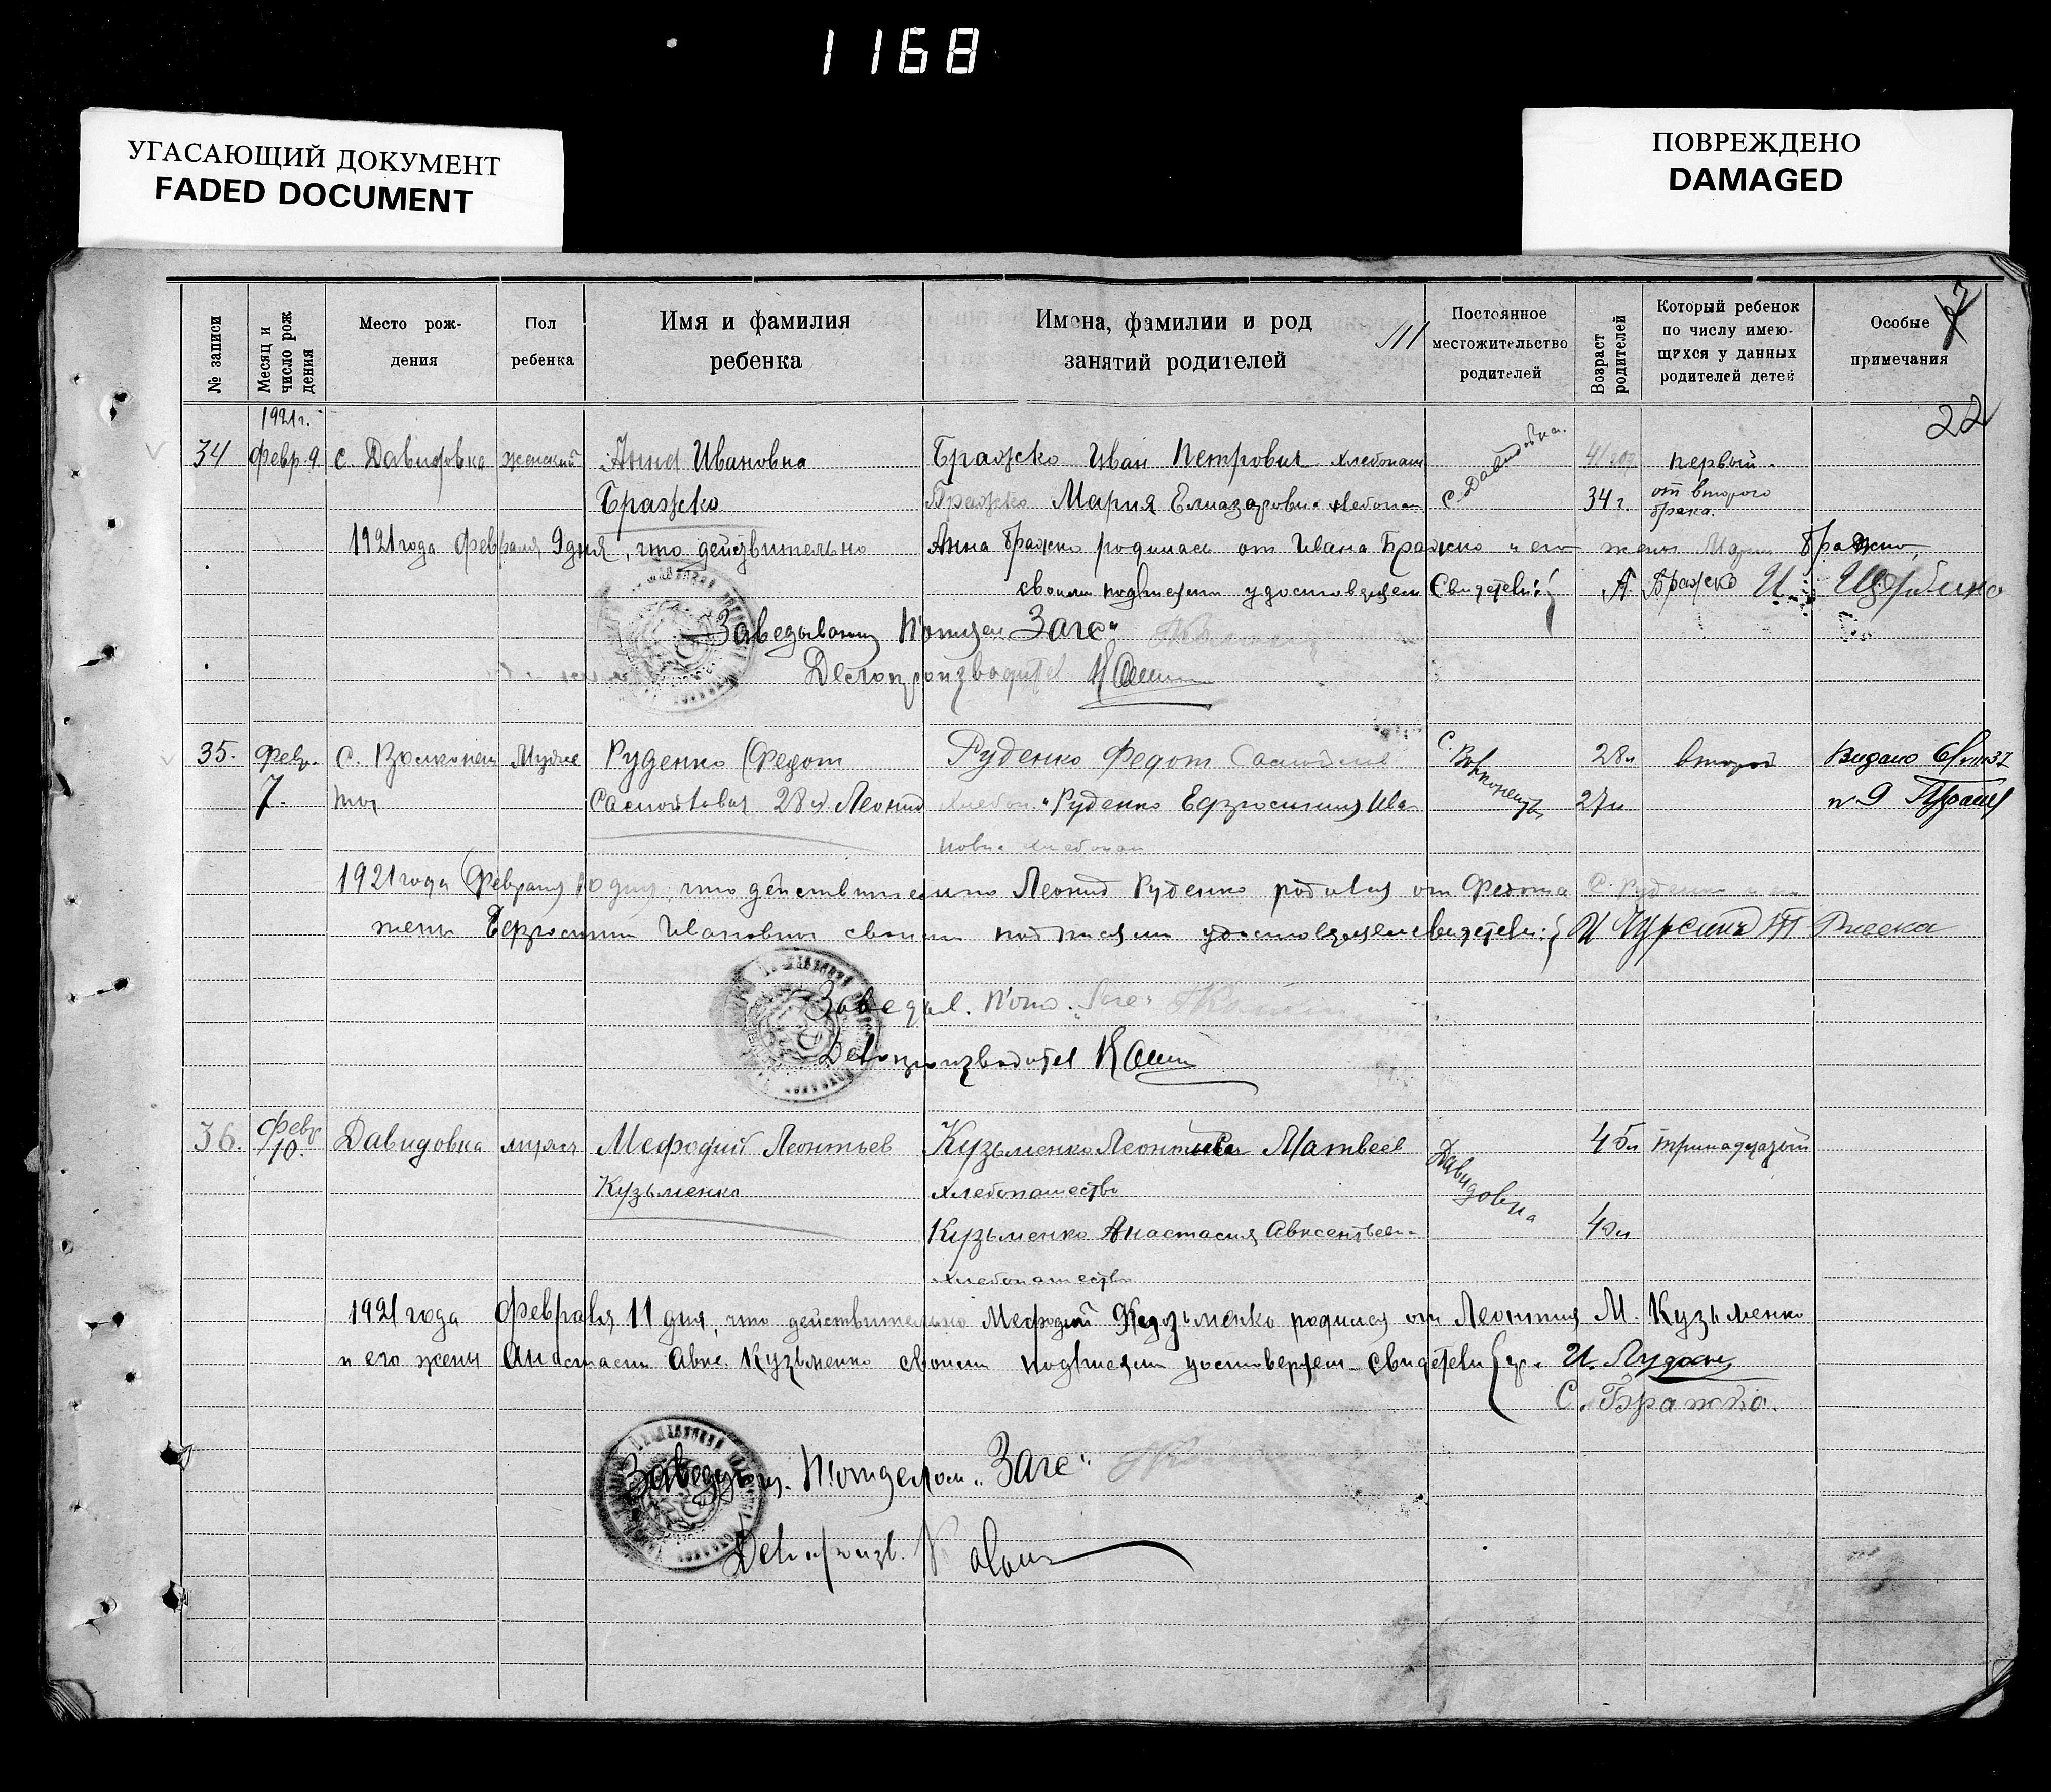 1168
УГАСАЮЩИЙ ДОКУМЕНТ
FADED DOCUMENT
ПОВРЕЖДЕНО
DAMAGED
№ записи
Месяц и число рож дения
Место рож-
дения
Пол
ребенка
Имя и фамилия
ребенка
Имена, фамилии и род
занятий родителей
Постоянное
местожительство
родителей
Возраст родителей
Который ребенок
по числу имею-
щихся у данных
родителей детей
Особые
примечания
7
22
1921 г.
34 Февр. 9 с. Давидовка женский Анна Ивановна Бражко Иван Петрович хлебопаш с. Давидовка. 41 год первый.
Бражко Бражко Мария Елиазаровн. хлебопаш 34 г. от второго
брака.
1921 года Февраля 9 дня, что действительно Анна Бражко родилась от Ивана Бражко и его жены Марии Бражко,
своими подписями удостоверяем Свидетели: А. Бражко И. Щербина
Заведывающ П/отдел „Загс“
Делопроизводител
35. Февр. с. Волконеш Мужск Руденко Федот Руденко Федот с. Волконешты 28 л второй Видано
7. 28 л Леонид хлебоп. Руденко Ефросиния Ива 27 л № 9
новн. хлебопаш
1921 года Февраля 10 дня, что действительно Леонид Руденко родился от Федота С. Руденко и его
жены Ефросинии Ивановны своими подписями удостоверяем свидетели: И
Заведыв. П/отд. „Загс“
Делопроизводител
36. Февр 10. Давидовка мужск Мефодий Леонтьев Кузьменко Леонтий Матвеев Давидовка 45 л тринадцатый
Кузьменко хлебопашество
Кузьменко Анастасия Авксентьевн. 40 л
хлебопашество
1921 года Февраля 11 дня, что действительно Мефодий Кузьменко родился от Леонтия М. Кузьменко
и его жены Анастасии Авкс. Кузьменко своими подписями удостоверяем Свидетели гр. И.
С. Бражко.
Заведующ. П/отделом „Загс“
Делопроизв.